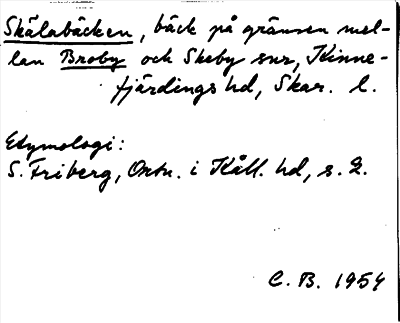 Skälabäcken, bäck på gränsen mel-
lan Broby och Skeby snr, Kinne-
fjärdings hd, Skar. l.
Etymologi:
S. Friberg, Ortn. i Kåll. hd, s. 2.
C. B. 1954